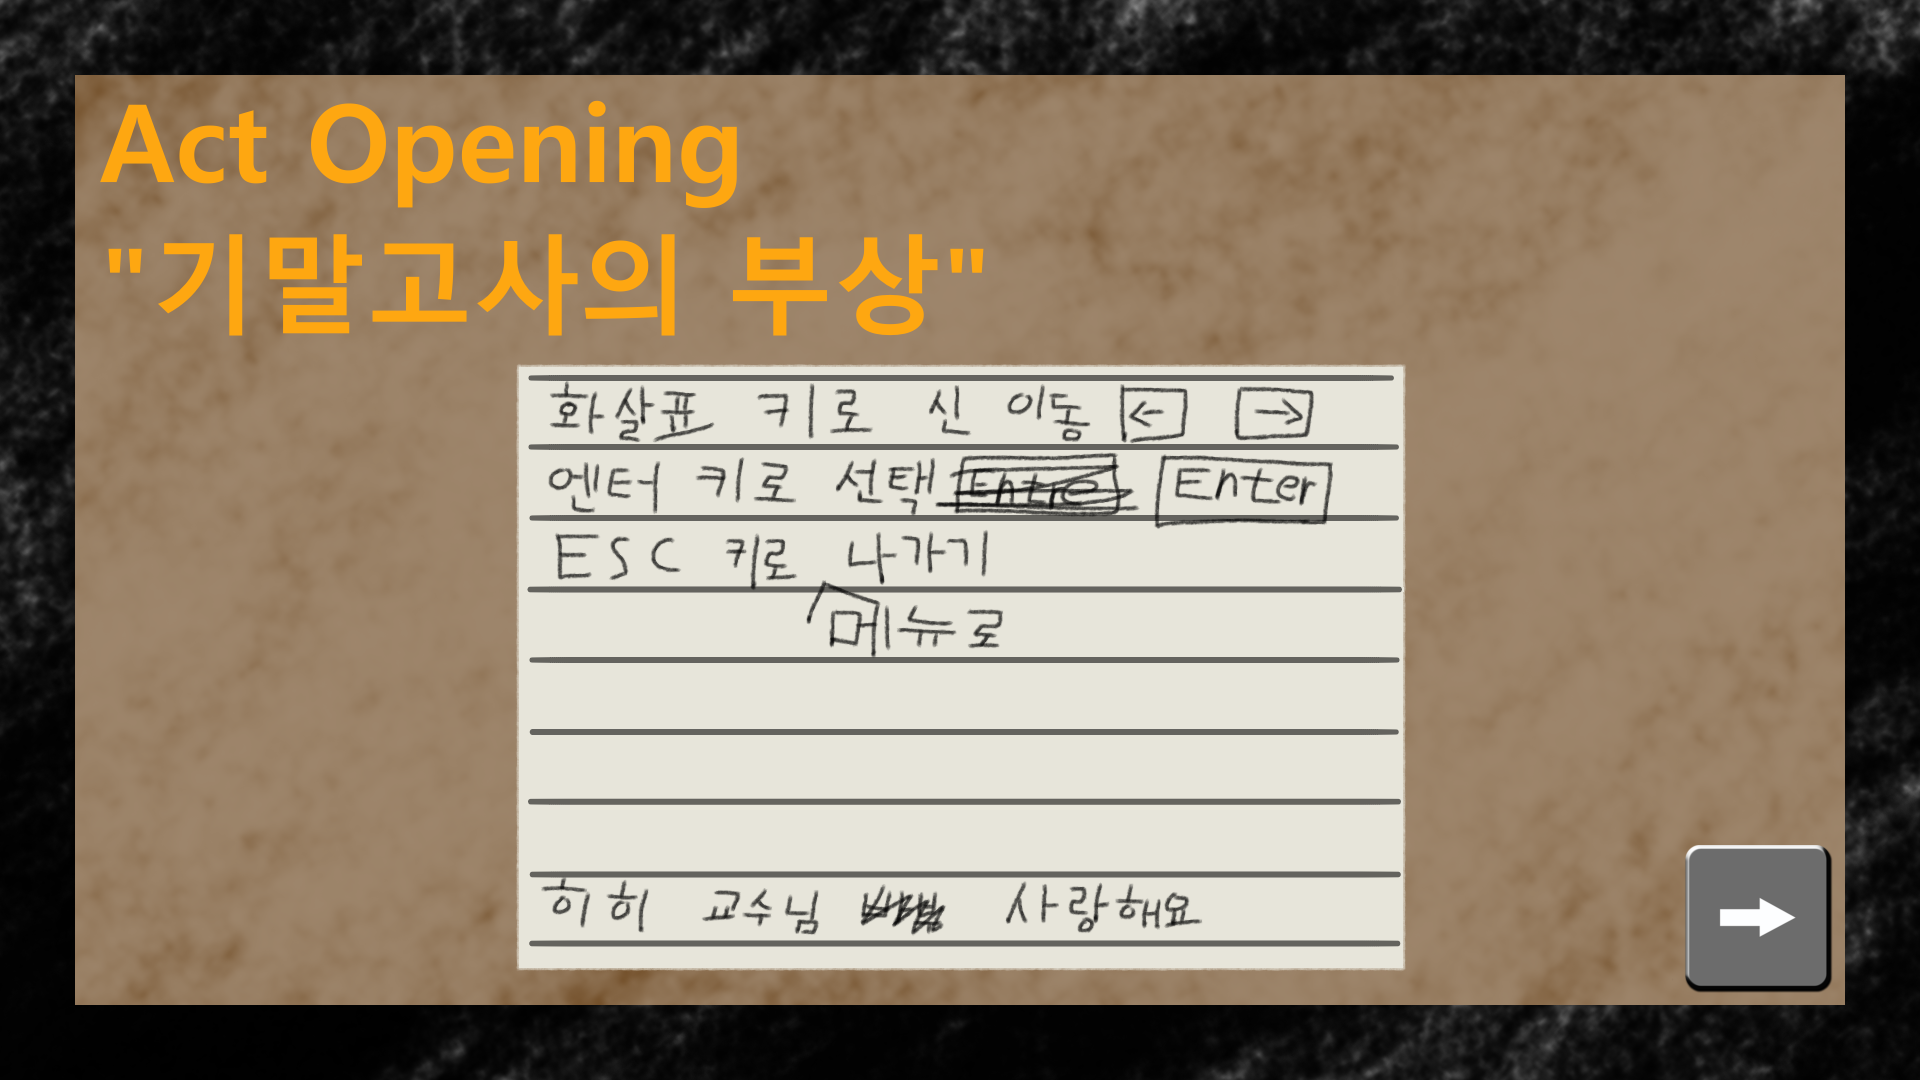 Act Opening
"기말고사의 부상"
화살표 키로 신 이동 ← →
엔터 키로 선택 Entre Enter
ESC 키로 나가기
메뉴로
히히 교수님 사랑해요